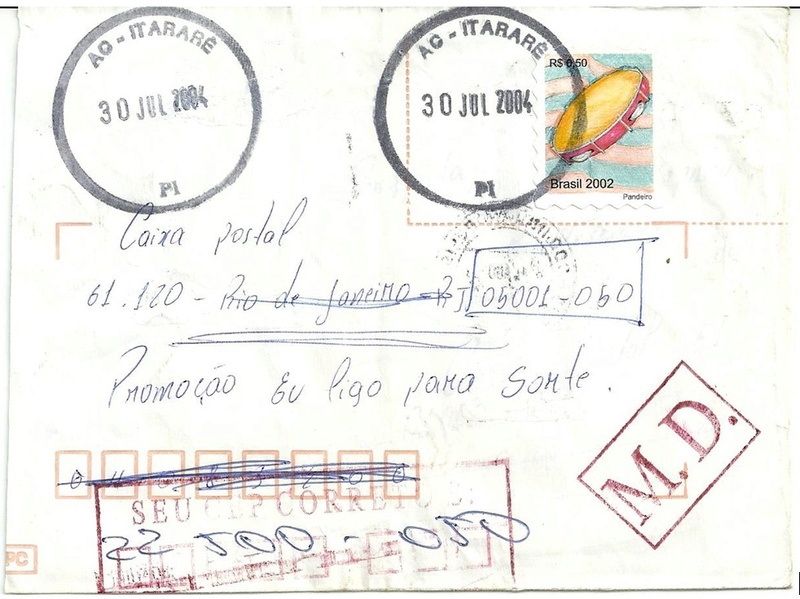 AC - ITARARÉ
30 JUL 2004
PI
AC - ITARARÉ
30 JUL 2004
PI
R$ 0,50
Brasil 2002
Pandeiro
Caixa postal
61.120 - Rio de Janeiro - RJ 05001-050
Promoção Eu ligo para Sorte.
M.D.
SEU CEP CORRETO É:
22 500 - 050
PC